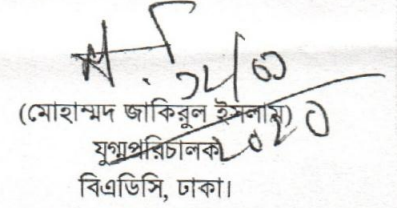 (মোহাম্মদ জাকিরুল ইসলাম)
যুগ্মপরিচালক
বিএডিসি, ঢাকা।